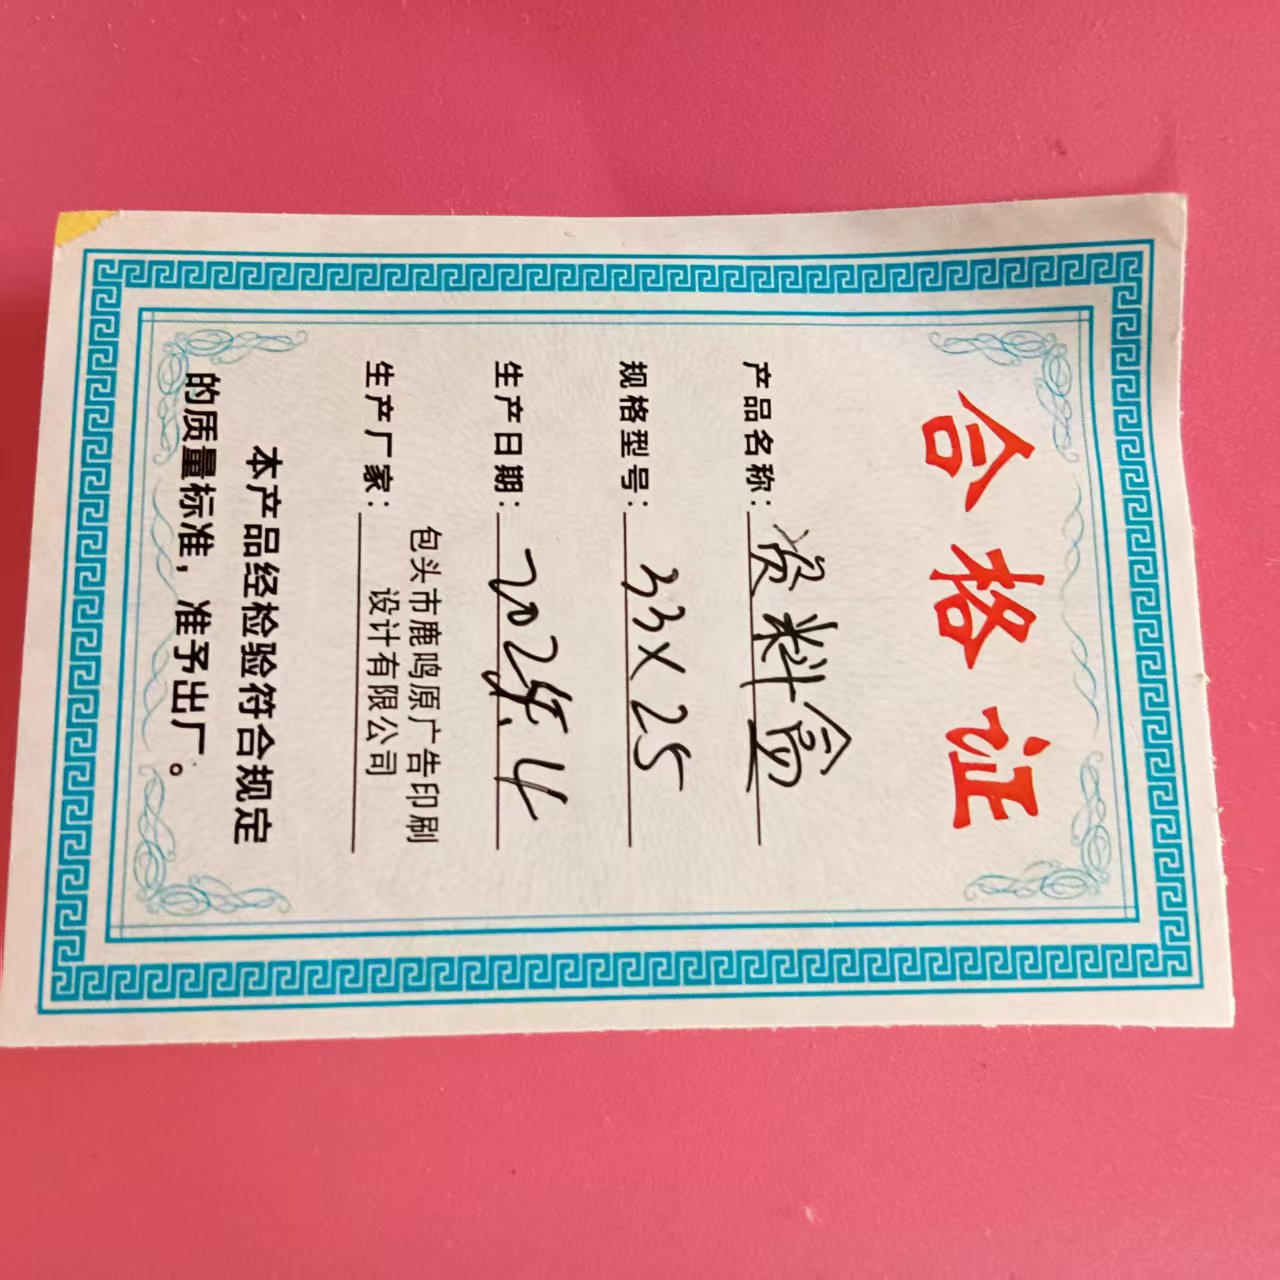 合格证
产品名称：资料盒
规格型号：33×25
生产日期：2025.4
生产厂家：包头市鹿鸣原广告印刷
设计有限公司
本产品经检验符合规定
的质量标准，准予出厂。